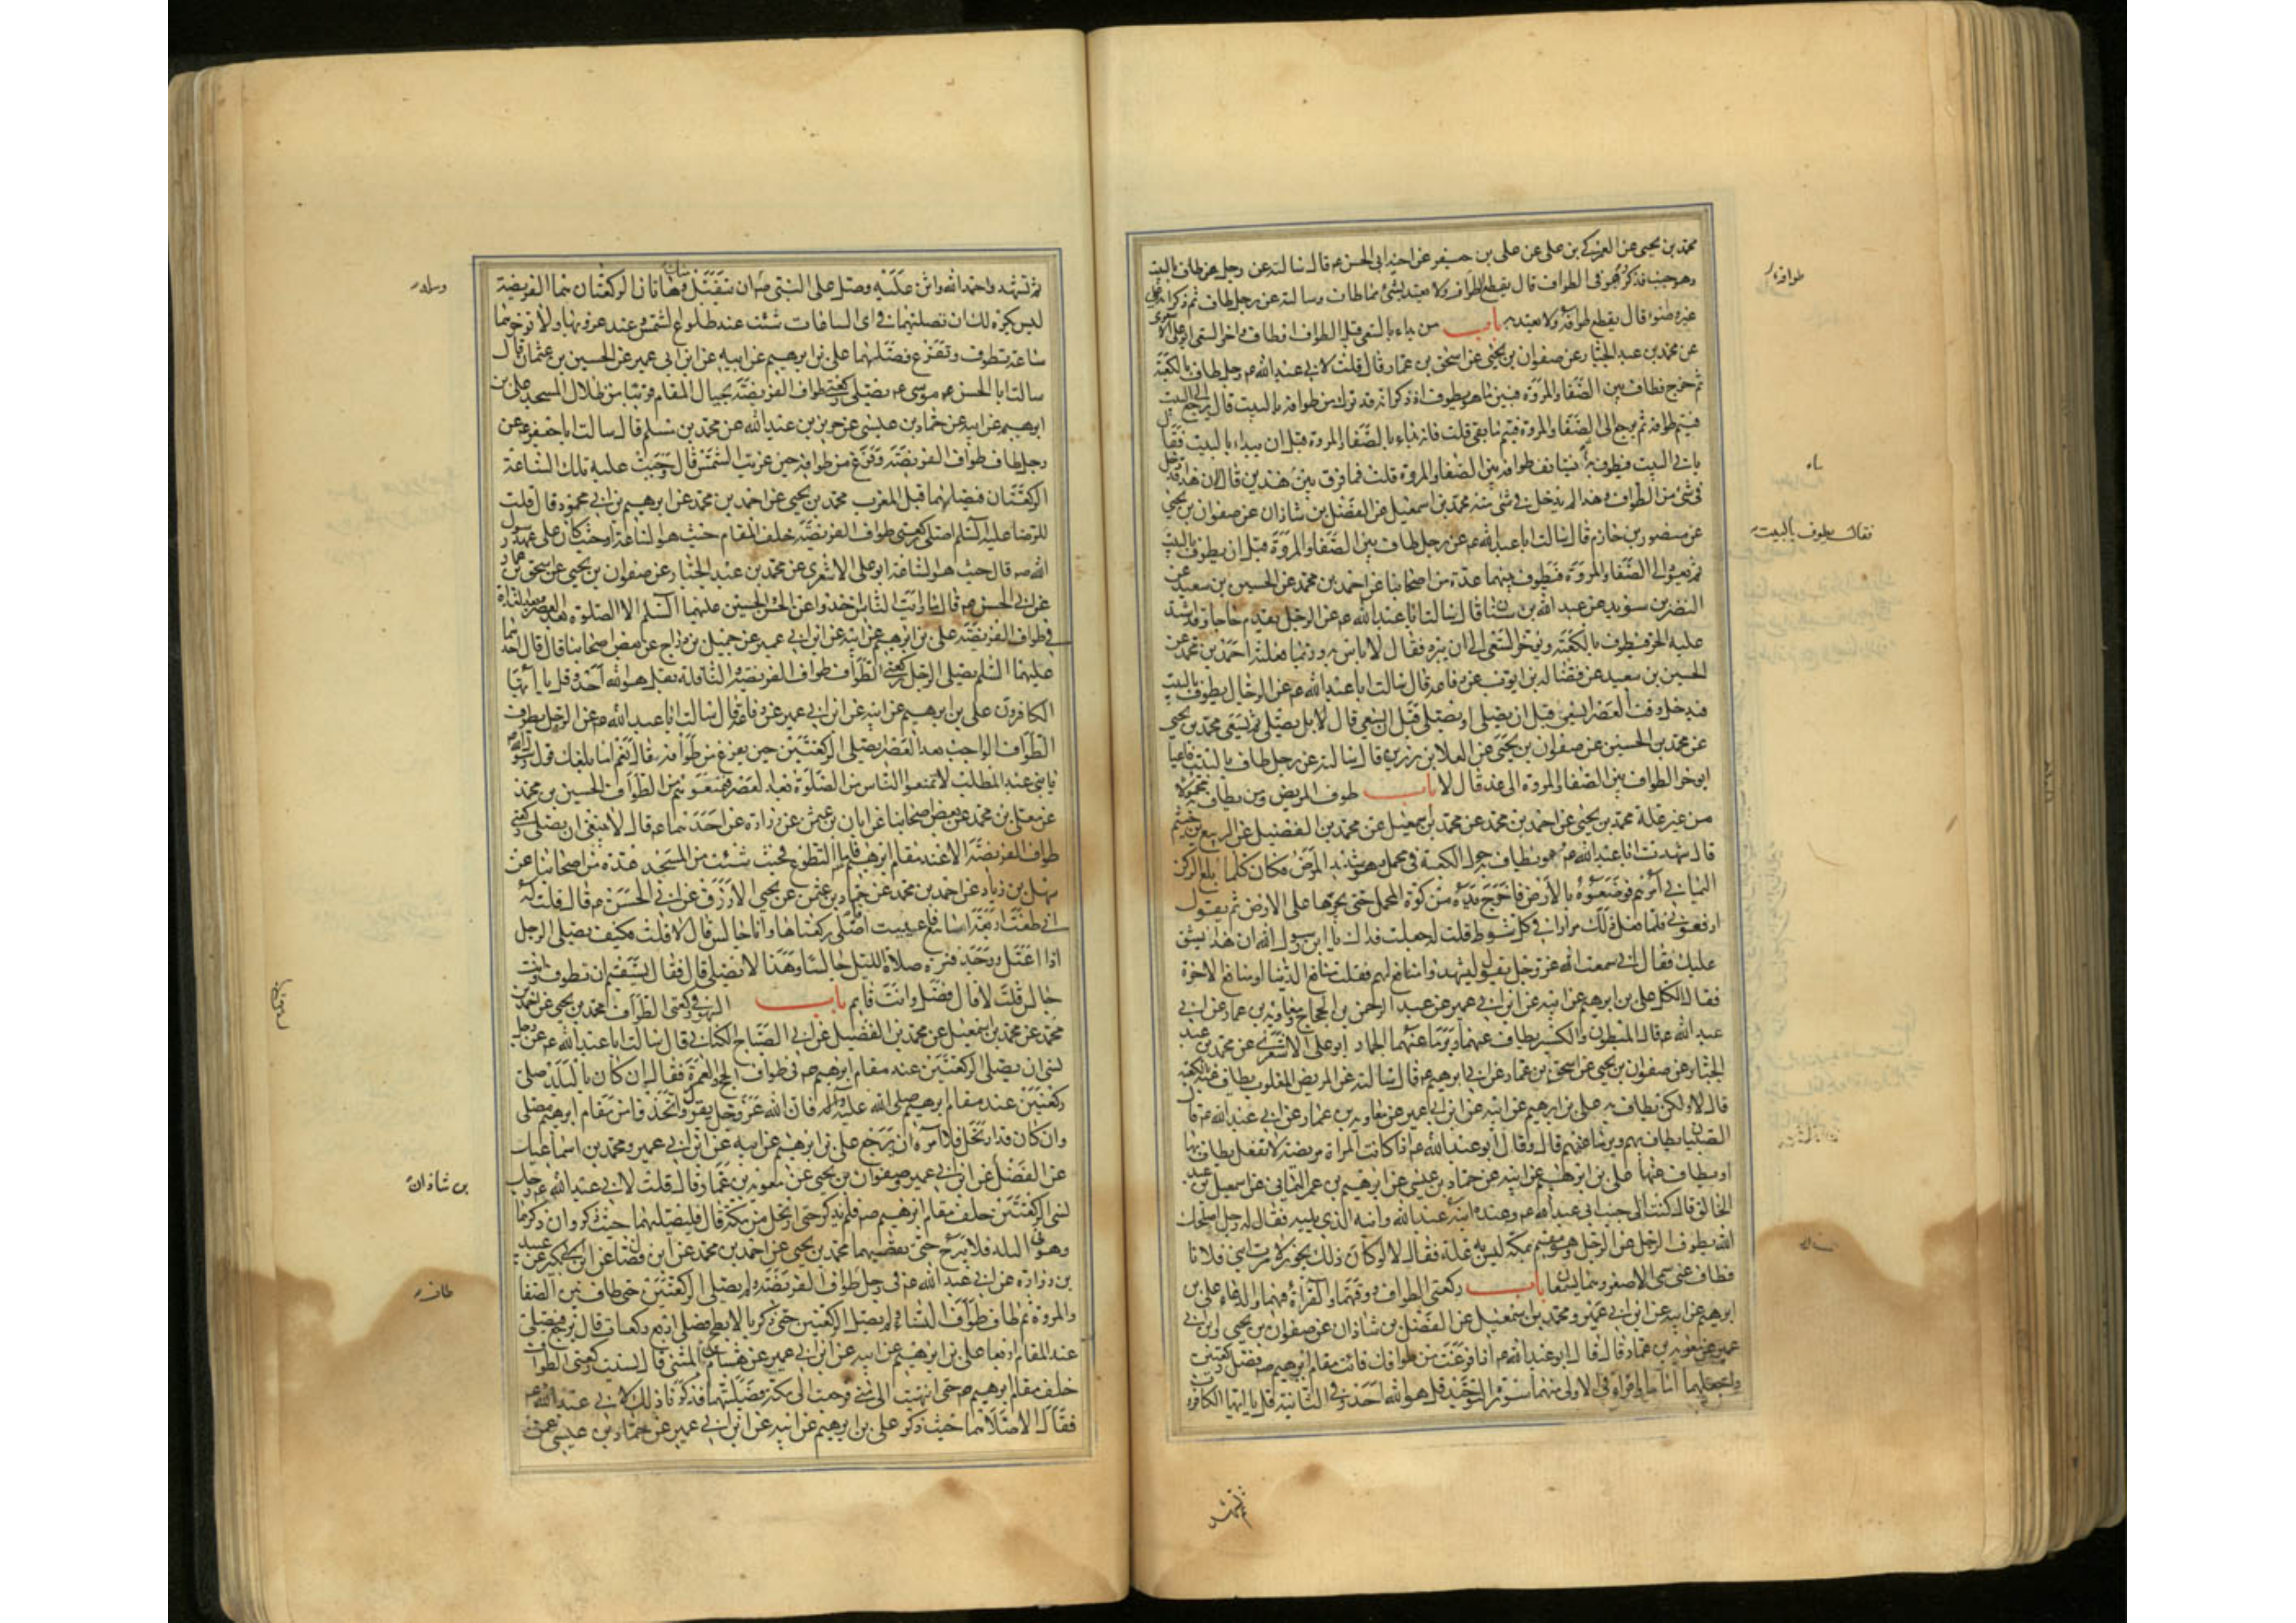 محمد بن يحيى عن العمركي بن علي عن علي بن جعفر عن اخيه ابي الحسن ع قال سالته عن رجل طاف بالبيت
قال يقطع طوافه ولا يعتد به باب من بداء بالسعي قبل الطواف او طاف واخر السعي ابو علي الاشعري
عن محمد بن عبد الجبار عن صفوان بن يحيى عن اسحق بن عمار قال قلت لابي عبد الله ع رجل طاف بالكعبة
ثم خرج فطاف بين الصفا والمروة فبينما هو يطوف اذ ذكر انه قد ترك من طوافه بالبيت قال يرجع الى البيت
فيتم طوافه ثم يرجع الى الصفا والمروة فيتم ما بقي قلت فانه بداء بالصفا والمروة قبل ان يبداء بالبيت فقا
ياتي البيت فيطوف به ثم يستانف طوافه بين الصفا والمروة قلت فما فرق بين هذين قال لان هذا قد دخل
في شئ من الطواف وهذا لم يدخل في شئ منه محمد بن اسمعيل عن الفضل بن شاذان عن صفوان بن يحيى
عن منصور بن حازم قال سالت ابا عبد الله ع عن رجل طاف بين الصفا والمروة قبل ان يطوف بالبيت
ثم يعود الى الصفا والمروة فيطوف بينهما عدة من اصحابنا عن احمد بن محمد عن الحسين بن سعيد عن
النضر بن سويد عن عبد الله بن سنان قال سالت ابا عبد الله ع عن الرجل يقدم حاجا وقد اشتد
عليه الحر فيطوف بالكعبة ويوخر السعي الى ان يبرد فقال لا باس به وربما فعلته احمد بن محمد عن
الحسين بن سعيد عن فضالة بن ايوب عن رفاعة قال سالت ابا عبد الله ع عن الرجل يطوف بالبيت
فيدخل وقت العصر ايسعى قبل ان يصلي او يصلي قبل ان يسعى قال لا بل يصلي ثم يسعى محمد بن يحيى
عن محمد بن الحسين عن صفوان بن يحيى عن العلا بن رزين قال سالته عن رجل طاف بالبيت فاعيا
ايوخر الطواف بين الصفا والمروة الى غد قال لا باب طواف المريض ومن يطاف به محمولا
من غير علة محمد بن يحيى عن احمد بن محمد عن محمد بن اسمعيل عن محمد بن الفضيل عن الربيع بن خثيم
قال شهدت ابا عبد الله ع وهو يطاف به حول الكعبة في محمل وهو شديد المرض فكان كلما بلغ الركن
اليماني امرهم فوضعوه بالارض فاخرج يده من كوة المحمل حتى يجرها على الارض ثم يقول
ارفعوني فلما فعل ذلك مرارا في كل شوط قلت له جعلت فداك يا ابن رسول الله ان هذا يشق
عليك فقال اني سمعت الله عز وجل يقول ليشهدوا منافع لهم فقلت منافع الدنيا او منافع الاخرة
فقال الكل علي بن ابرهيم عن ابيه عن ابن ابي عمير عن عبد الرحمن بن الحجاج ومعاوية بن عمار عن ابي
عبد الله ع قال المبطون والكسير يطاف عنهما ويرما عنهما الجمار ابو علي الاشعري عن محمد بن عبد
الجبار عن صفوان بن يحيى عن اسحق بن عمار عن ابي ابرهيم ع قال سالته عن المريض المغلوب يطاف عنه بالكعبة
قال لا ولكن يطاف به علي بن ابرهيم عن ابيه عن ابن ابي عمير عن معاوية بن عمار عن ابي عبد الله ع قا
الصبيان يطاف بهم ويرما عنهم قال وقال ابو عبد الله ع اذا كانت المراة مريضة لا تعقل يطاف بها
او يطاف عنها علي بن ابرهيم عن ابيه عن حماد بن عيسى عن ابرهيم بن عمر اليماني عن اسمعيل بن عبد
الخالق قال كنت الى جنب ابي عبد الله ع وعنده ابنه عبد الله وابنه الذي يليه فقال له رجل اصلحك
الله يطوف الرجل عن الرجل وهو مقيم بمكة ليس به علة فقال لا لو كان ذلك يجوز لامرت ابني فلانا
فطاف عني سمى الاصغر وهما يسمعان باب ركعتي الطواف ووقتهما والقراءة فيهما والدعاء علي بن
ابرهيم عن ابيه عن ابن ابي عمير ومحمد بن اسمعيل عن الفضل بن شاذان عن صفوان بن يحيى وابن ابي
عمير عن معوية بن عمار قال قال ابو عبد الله ع اذا فرغت من طوافك فائت مقام ابرهيم ص فصل ركعتين
واجعله اماما واقراء في الاولى منهما سورة التوحيد قل هو الله احد وفي الثانية قل يا ايها الكافرون
طوافه
فقال يطوف بالبيت
ثم تشهد
ثم تشهد واحمد الله واثن عليه وصل على النبي ص واسئله ان يتقبل منك وهاتان الركعتان هما الفريضة
ليس يكره لك ان تصليهما في اي الساعات شئت عند طلوع الشمس وعند غروبها ولا توخرهما
ساعة تطوف وتفرغ فصلهما علي بن ابرهيم عن ابيه عن ابن ابي عمير عن الحسين بن عثمان قال
رايت ابا الحسن موسى ع يصلي ركعتي طواف الفريضة بحيال المقام قريبا من ظلال المسجد علي بن
ابرهيم عن ابيه عن حماد بن عيسى عن حريز بن عبد الله عن محمد بن مسلم قال سالت ابا جعفر ع عن
رجل طاف طواف الفريضة وفرغ من طوافه حين غربت الشمس قال وجبت عليه تلك الساعة
الركعتان فيصليهما قبل المغرب محمد بن يحيى عن احمد بن محمد عن ابرهيم بن ابي محمود قال قلت
للرضا عليه السلم اصلي ركعتي طواف الفريضة خلف المقام حيث هو الساعة او حيث كان على عهد رسول
الله ص قال حيث هو الساعة ابو علي الاشعري عن محمد بن عبد الجبار عن صفوان بن يحيى عن اسحق بن عمار
عن ابي الحسن ع قال ما رايت الناس اخذوا عن الحسن والحسين عليهما السلم الا الصلوة بعد العصر وبعد الغداة
في طواف الفريضة علي بن ابرهيم عن ابيه عن ابن ابي عمير عن جميل بن دراج عن بعض اصحابنا قال قال احدهما
عليهما السلم يصلي الرجل ركعتي الطواف طواف الفريضة والنافلة بقل هو الله احد وقل يا ايها
الكافرون علي بن ابرهيم عن ابيه عن ابن ابي عمير عن رفاعة قال سالت ابا عبد الله ع عن الرجل يطوف
الطواف الواجب بعد العصر ايصلي الركعتين حين يفرغ من طوافه قال نعم اما بلغك قول رسول الله ص
يا بني عبد المطلب لا تمنعوا الناس من الصلوة بعد العصر فتمنعوهم من الطواف الحسين بن محمد
عن معلى بن محمد عن بعض اصحابنا عن ابان بن عثمن عن زرارة عن احدهما ع قال لا ينبغي ان يصلي ركعتي
طواف الفريضة الا عند مقام ابرهيم فاما التطوع فحيث شئت من المسجد عدة من اصحابنا عن
سهل بن زياد عن احمد بن محمد عن حماد بن عثمن عن يحيى الازرق عن ابي الحسن ع قال قلت له
اني طفت اربعة اسابيع فاعييت افاصلي ركعاتها وانا جالس قال لا قلت فكيف يصلي الرجل
اذا اعتل ووجد فترة صلاة الليل جالسا وهذا لا يصلي قال فقال يستقيم ان تطوف وانت
جالس قلت لا قال فصل وانت قايم باب السهو في ركعتي الطواف محمد بن يحيى عن احمد بن
محمد عن محمد بن اسمعيل عن محمد بن الفضيل عن ابي الصباح الكناني قال سالت ابا عبد الله ع عن رجل
نسي ان يصلي الركعتين عند مقام ابرهيم ص في طواف الحج والعمرة فقال ان كان بالبلد صلى
ركعتين عند مقام ابرهيم صلى الله عليه واله فان الله عز وجل يقول واتخذوا من مقام ابرهيم مصلى
وان كان قد ارتحل فلا امره ان يرجع علي بن ابرهيم عن ابيه عن ابن ابي عمير ومحمد بن اسماعيل
عن الفضل عن ابن ابي عمير وصفوان بن يحيى عن معوية بن عمار قال قلت لابي عبد الله ع رجل
نسي الركعتين خلف مقام ابرهيم ص فلم يذكر حتى ارتحل من مكة قال فليصلهما حيث ذكر وان ذكرهما
وهو في البلد فلا يبرح حتى يقضيهما محمد بن يحيى عن احمد بن محمد عن ابن فضال عن ابن بكير عن عبيد
بن زرارة عن ابي عبد الله ع في رجل طاف طواف الفريضة ولم يصلي الركعتين حتى طاف بين الصفا
والمروة ثم طاف طواف النساء ولم يصل الركعتين حتى ذكر بالابطح فصلى اربع ركعات قال يرجع فيصلي
عند المقام اربعا علي بن ابرهيم عن ابيه عن ابن ابي عمير عن هشام بن المثنى قال نسيت ركعتي الطواف
خلف مقام ابرهيم ص حتى انتهيت الى منى فرجعت الى مكة فصليتهما فذكرنا ذلك لابي عبد الله ع
فقال الا صلاهما حيث ذكر علي بن ابرهيم عن ابيه عن ابن ابي عمير عن حماد بن عيسى عمن
بن شاذان
طاف